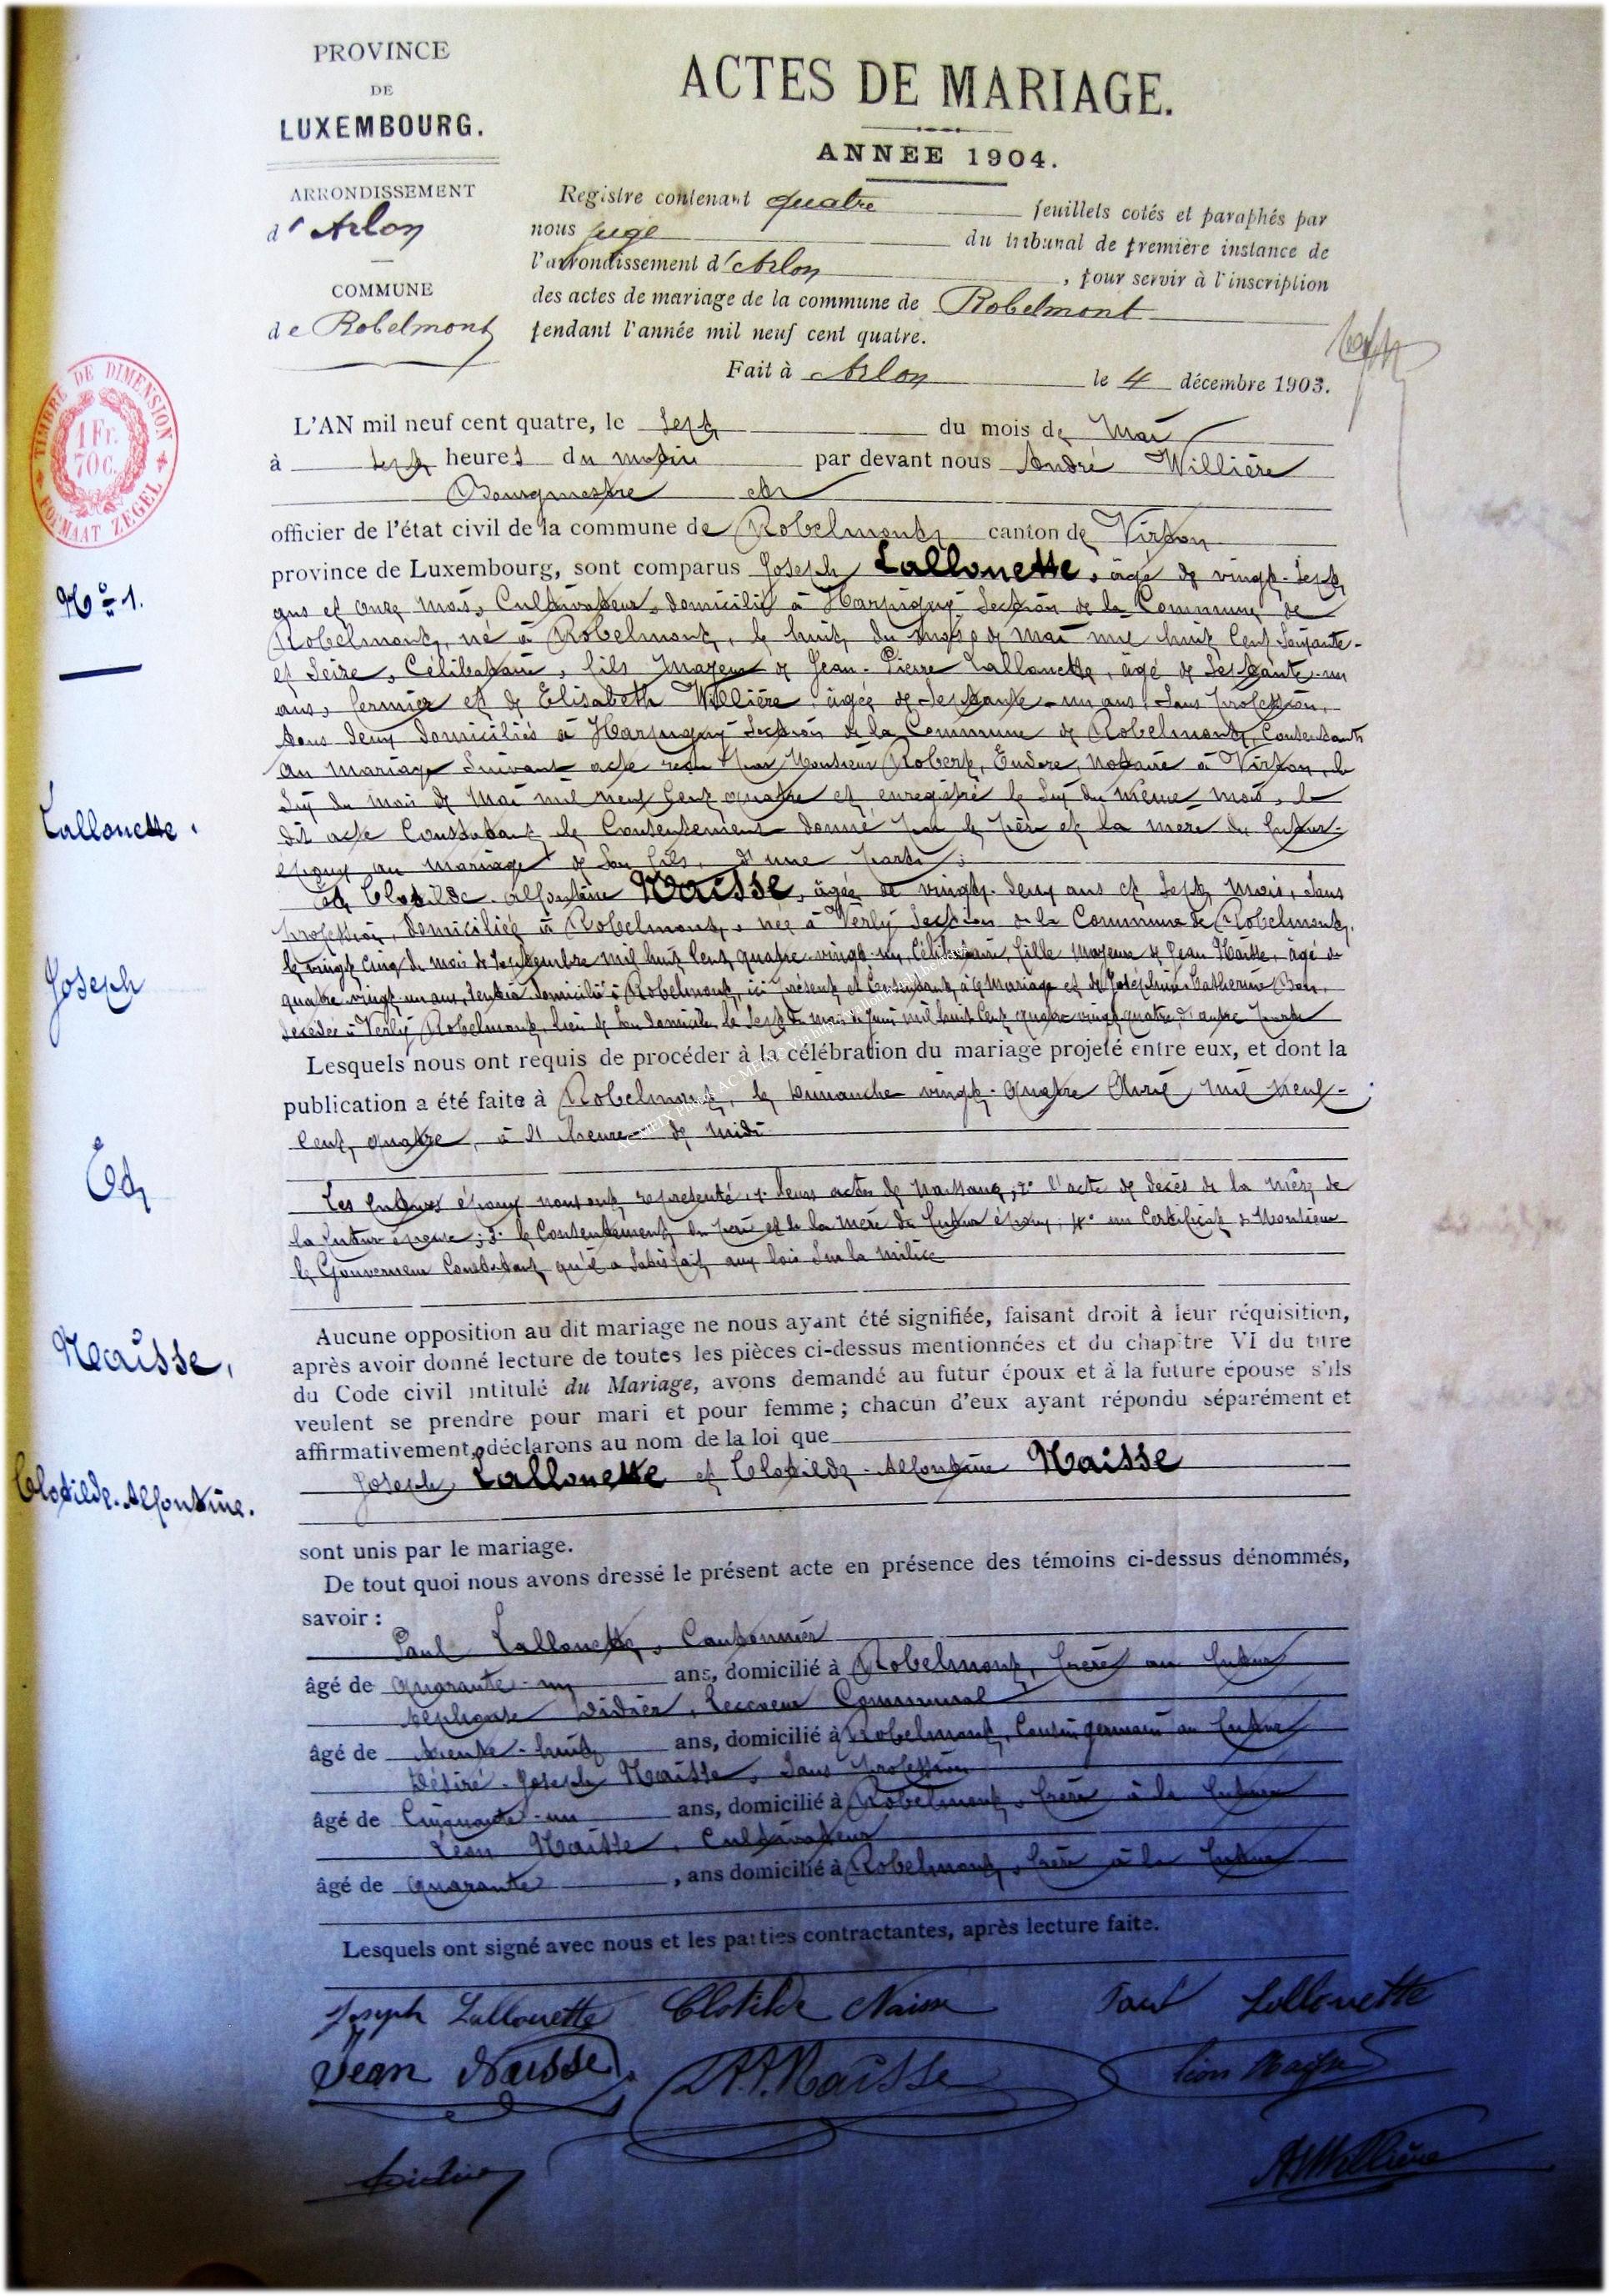 PROVINCE
DE
LUXEMBOURG.
ARRONDISSEMENT
d'Arlon
COMMUNE
de Robelmont
ACTES DE MARIAGE.
ANNÉE 1904.
Registre contenant quatre feuillets cotés et paraphés par
nous juge du tribunal de première instance de
l'arrondissement d'Arlon, pour servir à l'inscription
des actes de mariage de la commune de Robelmont
pendant l'année mil neuf cent quatre.
Fait à Arlon le 4 décembre 1903.
TIMBRE DE DIMENSION
1 Fr.
70 C.
FORMAAT ZEGEL
N° 1.
Lallouette.
Joseph
Et
Naisse,
Clotilde-Alfontine.
L'AN mil neuf cent quatre, le sept du mois de Mai
à sept heures du matin par devant nous André Willière
Bourgmestre
officier de l'état civil de la commune de Robelmont canton de Virton
province de Luxembourg, sont comparus Joseph Lallouette, âgé de vingt-sept
ans et onze mois, Cultivateur, domicilié à Harpigny section de la Commune de
Robelmont, né à Robelmont, le huit du mois de mai mil huit cent soixante-
et seize, Célibataire, fils majeur de Jean-Pierre Lallouette, âgé de septante-un
ans, fermier et de Elisabeth Willière, âgée de septante-un ans, sans profession,
tous deux domiciliés à Harpigny section de la Commune de Robelmont, Consentants
au mariage suivant acte reçu par Monsieur Robert, Eudore, Notaire à Virton, le
six du mois de Mai mil neuf cent quatre et enregistré le six du même mois, le
dit acte Constatant le Consentement donné par le père et la mère du futur-
époux au mariage de son fils, d'une part;
Et Clotilde-Alfontine Naisse, âgée de vingt-deux ans et sept mois, sans
profession, domiciliée à Robelmont, née à Verly section de la Commune de Robelmont,
le vingt cinq du mois de septembre mil huit cent quatre-vingt-un, Célibataire fille majeure de Jean Naisse, âgé de
quatre-vingt-un ans, rentier domicilié à Robelmont, ici présent et Consentant à ce mariage et de Joséphine-Catherine
décédée à Verly Robelmont, lieu de son domicile, le sept du mois de Juin mil huit cent quatre-vingt-quatre, d'autre part
Lesquels nous ont requis de procéder à la célébration du mariage projeté entre eux, et dont la
publication a été faite à Robelmont, le Dimanche vingt-quatre Avril mil neuf-
cent quatre, à l'heure de midi
Les futurs époux nous ont représenté 1° leurs actes de naissance; 2° l'acte de décès de la mère de
la future épouse; 3° le Consentement du père et de la mère du futur époux; 4° un Certificat de Monsieur
le Gouverneur Constatant qu'il a satisfait aux lois sur la milice
Aucune opposition au dit mariage ne nous ayant été signifiée, faisant droit à leur réquisition,
après avoir donné lecture de toutes les pièces ci-dessus mentionnées et du chapitre VI du titre
du Code civil intitulé du Mariage, avons demandé au futur époux et à la future épouse s'ils
veulent se prendre pour mari et pour femme; chacun d'eux ayant répondu séparément et
affirmativement, déclarons au nom de la loi que
Joseph Lallouette et Clotilde-Alfontine Naisse
sont unis par le mariage.
De tout quoi nous avons dressé le présent acte en présence des témoins ci-dessus dénommés,
savoir:
Paul Lallouette, Cantonnier
âgé de quarante-un ans, domicilié à Robelmont, frère au futur
Alphonse Didier, Receveur Communal
âgé de trente-huit ans, domicilié à Robelmont, Cousin germain au futur
Désiré-Joseph Naisse, sans profession
âgé de Cinquante-un ans, domicilié à Robelmont, frère à la future
Léon Naisse, Cultivateur
âgé de quarante, ans domicilié à Robelmont, frère à la future
Lesquels ont signé avec nous et les parties contractantes, après lecture faite.
Joseph Lallouette Clotilde Naisse Paul Lallouette
Jean Naisse Naisse Léon Naisse
Didier A Willière